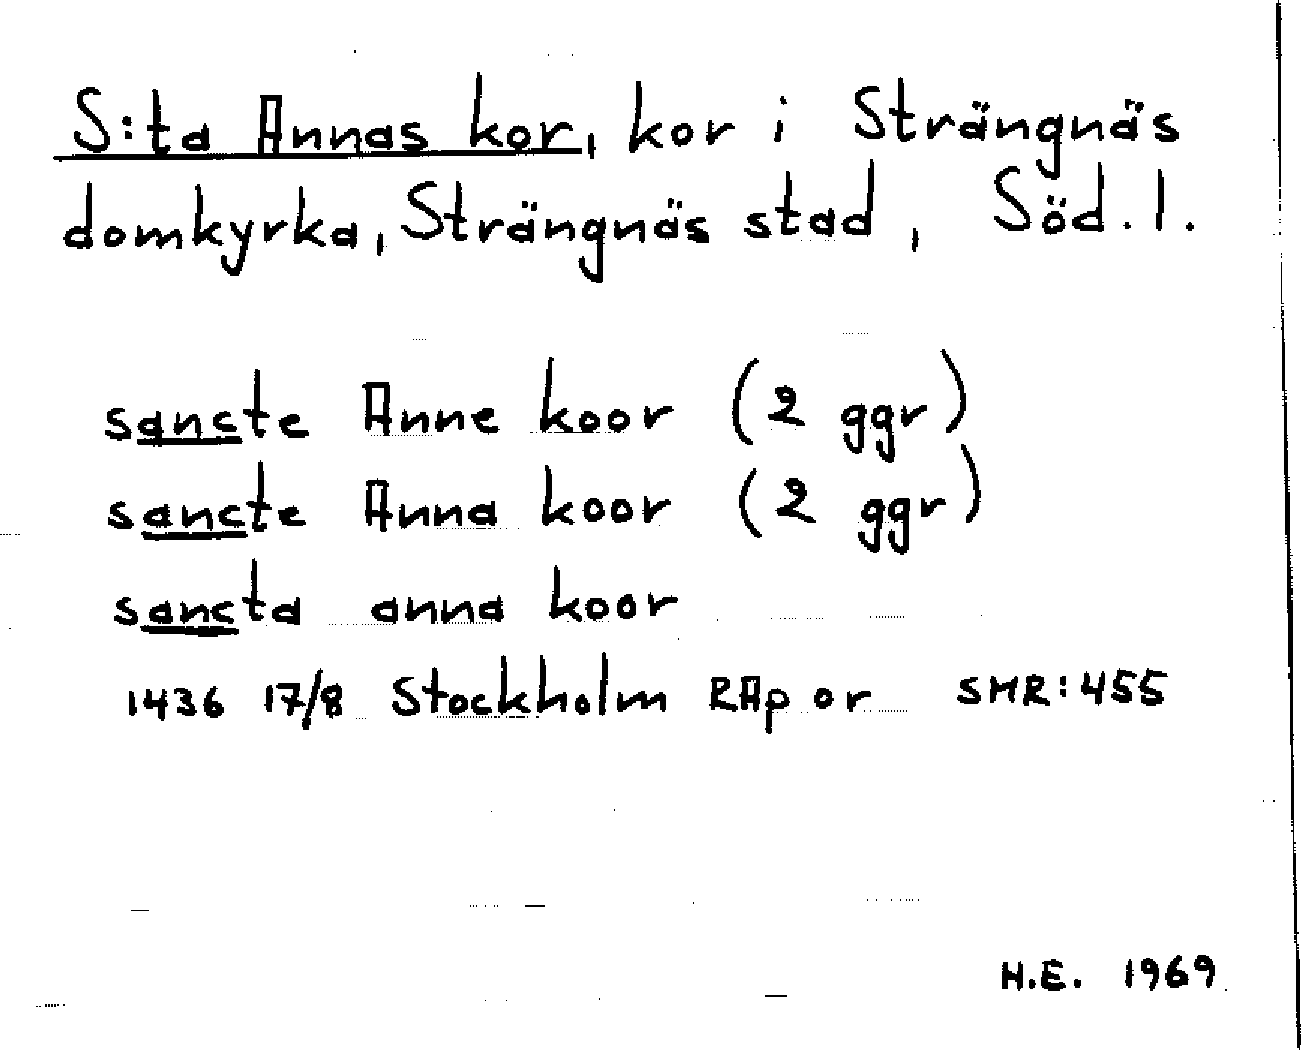 S:ta Annas kor, kor i Strängnäs
domkyrka, Strängnäs stad, Söd. l.
sancte Anne koor (2 ggr)
sancte Anna koor (2 ggr)
sancta anna koor
1436 17/8 Stockholm RAp or SMR:455
H.E. 1969